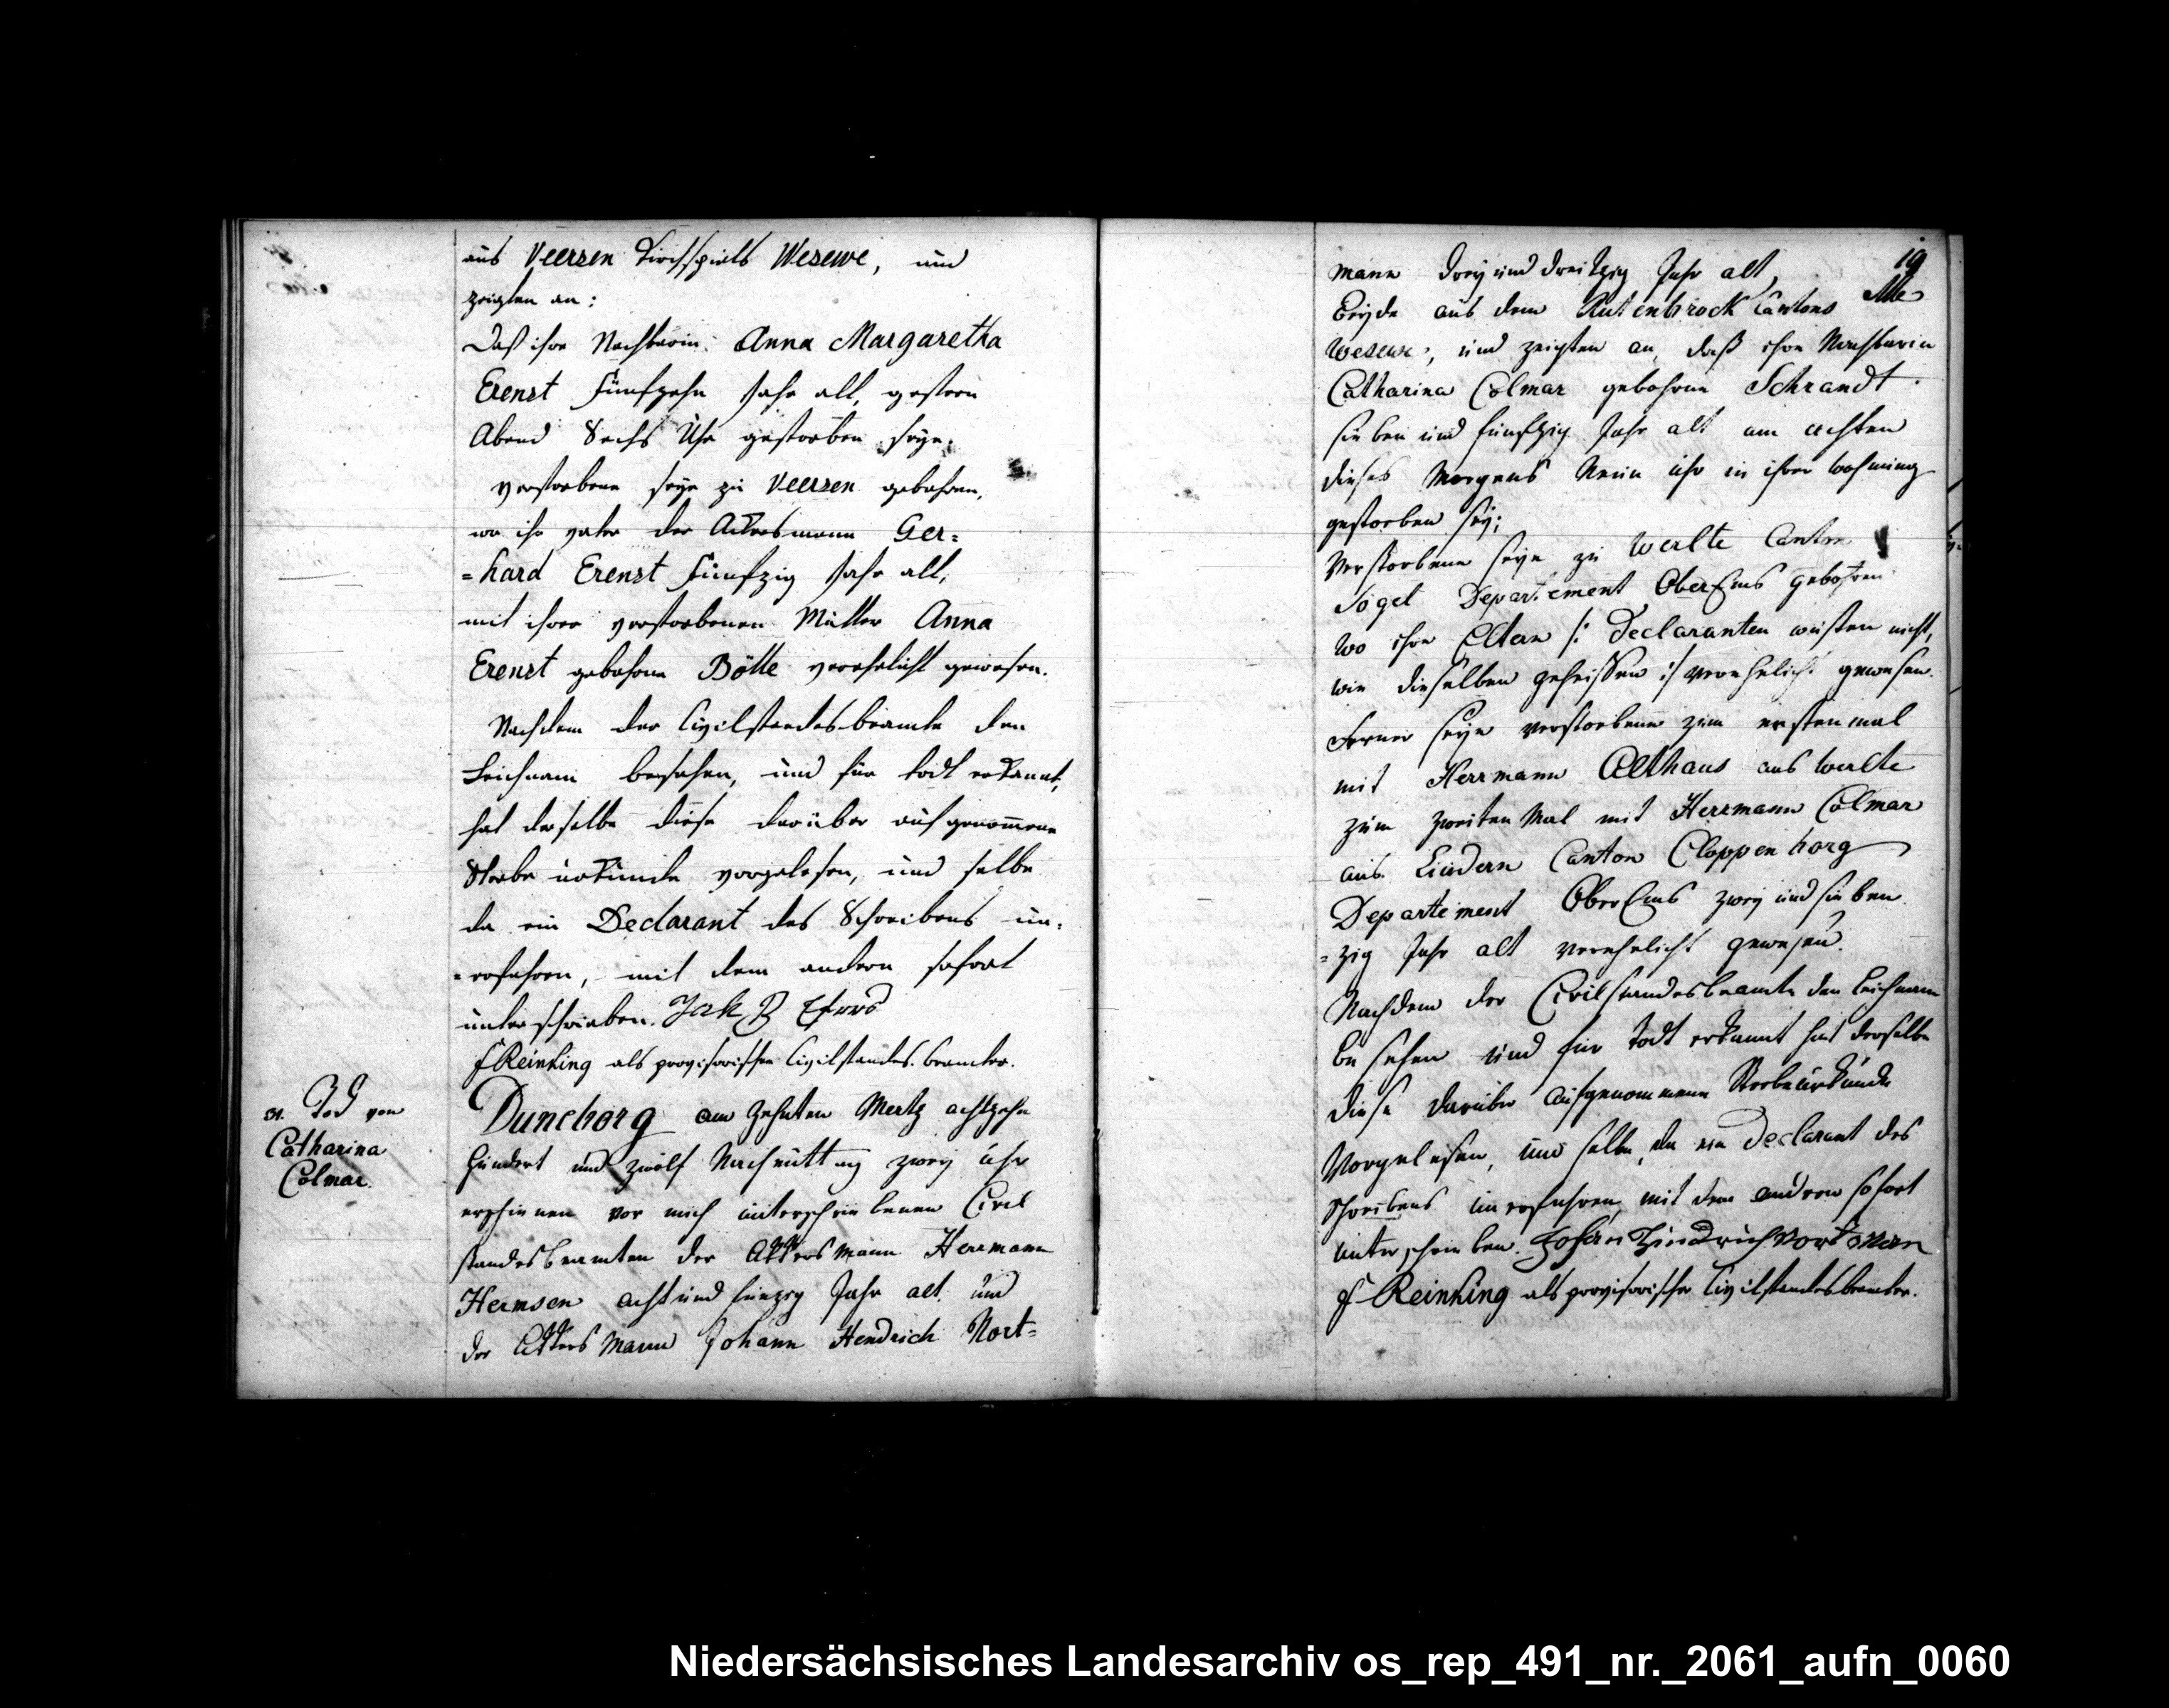 aus Veersen Kirchspiels Wesewe, und
zeigten an:
Daß ihre Nachbarin: Anna Margaretha
Erenst fünfzehn Jahr alt, gestern
Abend Sechs Uhr gestorben seye.
verstorbene seye zu Veersen gebohren,
wo ihr vater der Ackersmann Ger=
=hard Erenst fünfzig Jahr alt,
mit ihrer verstorbenen Mutter Anna
Erenst gebohrne Bölle verehelicht gewesen.
Nachdem der Civilstandesbeamte den
Leichnam besehen, und für todt erkannt,
hat derselbe diese darüber aufgenom̄ene
Sterbe urkunde vorgelesen, und selbe
da ein Declarant des Schreibens un=
=erfahren, mit dem andern sofort
unterschrieben.
F Reinking als provisorischer Civilstandes.beamter.
31. Tod von
Catharina
Colmar.
Duneborg am zehnten Mertz achtzehn
hundert und zwölf Nachmittag zwey uhr
erschienen vor mich unterschriebenen Civil
standesbeamten der Ackersmann Herrmann
Hermsen acht und funzig Jahr alt und
der Ackersmann Johann Hendrich Nort=
19
mann drey und dreitzig Jahr alt,
beyde aus dem Rutenbrock Cantons
Wesewe, und zeigten an, daß ihre Nachbarin
Catharina Colmar gebohrne Schrandt
sieben und funfzig Jahr alt am achten
dieses Morgens Neun uhr in ihrer wohnung
gestorben sey;
Verstorbene seye zu Werlte Canton
Sögel Departement OberEms gebohren
wo ihre Eltern /: Declaranten wusten nicht,
wie dieselben geheissen :/ verehelicht gewesen.
Ferner seye verstorbene zum erstenmal
mit Herrmann Althaus aus Werlte
zum zweiten Mal mit Herrmann Colmar
aus Lindern Canton Cloppenborg
Departement OberEms zwey und sieben
=zig Jahr alt verehelicht gewesen.
Nachdem der Civilstandesbeamte den Leichnam
besehen und für todt erkannt hat derselbe
diese darüber aufgenommene Sterbeurkunde
Vorgelesen, und selbe, da ein Declarant des
Schreibens unerfahren, mit dem andren sofort
unterschrieben. Johan Hindrich Nortman
F Reinking als provisorischer Civilstandesbeamter.
Niedersächsisches Landesarchiv os_rep_491_nr._2061_aufn_0060